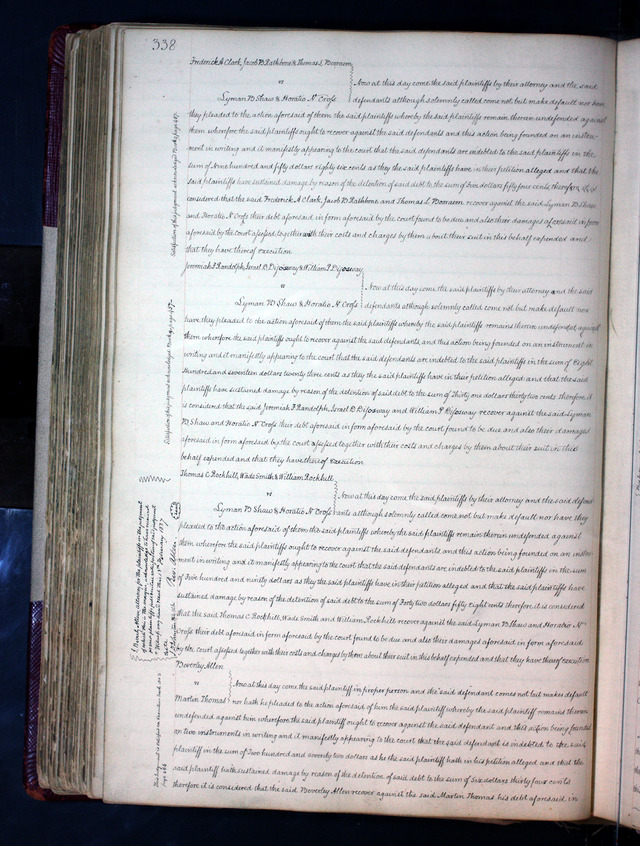 338
Frederick A Clark, Jacob B Rathbone & Thomas L Booraem
vs
Now at this day come the said plaintiffs by their attorney and the said
Lyman B Shaw & Horatio N Cross
defendants although solemnly called come not but make default nor have
they pleaded to the action aforesaid of them the said plaintiffs whereby the said plaintiffs remain therein undefended against
them wherefore the said plaintiffs ought to recover against the said defendants and this action being founded on an instru-
ment in writing and it manifestly appearing to the court that the said defendants are indebted to the said plaintiffs in the
sum of Nine hundred and fifty dollars eighty six cents as they the said plaintiffs have in their petition alleged and that the
said plaintiffs have sustained damage by reason of the detention of said debt to the sum of Five dollars fifty four cents, therefore it is
considered that the said Frederick A Clark, Jacob B Rathbone and Thomas L Booraem recover against the said Lyman B Shaw
and Horatio N Cross their debt aforesaid in form aforesaid by the court found to be due and also their damages aforesaid in form
aforesaid by the court assessed together with their costs and charges by them about their suit in this behalf expended and
that they have thereof execution
Jeremiah J Randolph, Israel D Disosway & William P Disosway
vs
Now at this day come the said plaintiffs by their attorney and the said
Lyman B Shaw & Horatio N Cross
defendants although solemnly called come not but make default nor
have they pleaded to the action aforesaid of them the said plaintiffs whereby the said plaintiffs remains therein undefended against
them wherefore the said plaintiffs ought to recover against the said defendants, and this action being founded on an instrument in
writing and it manifestly appearing to the court that the said defendants are indebted to the said plaintiffs in the sum of Eight
hundred and seventeen dollars twenty three cents as they the said plaintiffs have in their petition alleged and that the said
plaintiffs have sustained damage by reason of the detention of said debt to the sum of Thirty one dollars thirty two cents therefore it
is considered that the said Jeremiah J Randolph, Israel D Disosway and William P Disosway recover against the said Lyman
B Shaw and Horatio N Cross their debt aforesaid in form aforesaid by the court found to be due and also their damages
aforesaid in form aforesaid by the court assessed together with their costs and charges by them about their suit in this
behalf expended and that they have thereof execution
Thomas C Rockhill, Wade Smith & William Rockhill
vs
Now at this day come the said plaintiffs by their attorney and the said defend
Lyman B Shaw & Horatio N Cross
ants although solemnly called come not but make default nor have they
pleaded to the action aforesaid of them the said plaintiffs whereby the said plaintiffs remain therein undefended against
them wherefore the said plaintiffs ought to recover against the said defendants and this action being founded on an instru-
ment in writing and it manifestly appearing to the court that the said defendants are indebted to the said plaintiffs in the sum
of Five hundred and ninety dollars as they the said plaintiffs have in their petition alleged and that the said plaintiffs have
sustained damage by reason of the detention of said debt to the sum of Forty two dollars fifty eight cents therefore it is considered
that the said Thomas C Rockhill, Wade Smith and William Rockhill recover against the said Lyman B Shaw and Horatio N
Cross their debt aforesaid in form aforesaid by the court found to be due and also their damages aforesaid in form aforesaid
by the court assessed together with their costs and charges by them about their suit in this behalf expended and that they have thereof execution
Beverley Allen
vs
Now at this day come the said plaintiff in proper person and the said defendant comes not but makes default
Martin Thomas
nor hath he pleaded to the action aforesaid of him the said plaintiff whereby the said plaintiff remains therein
undefended against him wherefore the said plaintiff ought to recover against the said defendant and this action being founded
on two instruments in writing and it manifestly appearing to the court that the said defendant is indebted to the said
plaintiff in the sum of Two hundred and seventy two dollars as he the said plaintiff hath in his petition alleged and that the
said plaintiff hath sustained damage by reason of the detention of said debt to the sum of Six dollars thirty four cents
therefore it is considered that the said Beverley Allen recover against the said Martin Thomas his debt aforesaid in